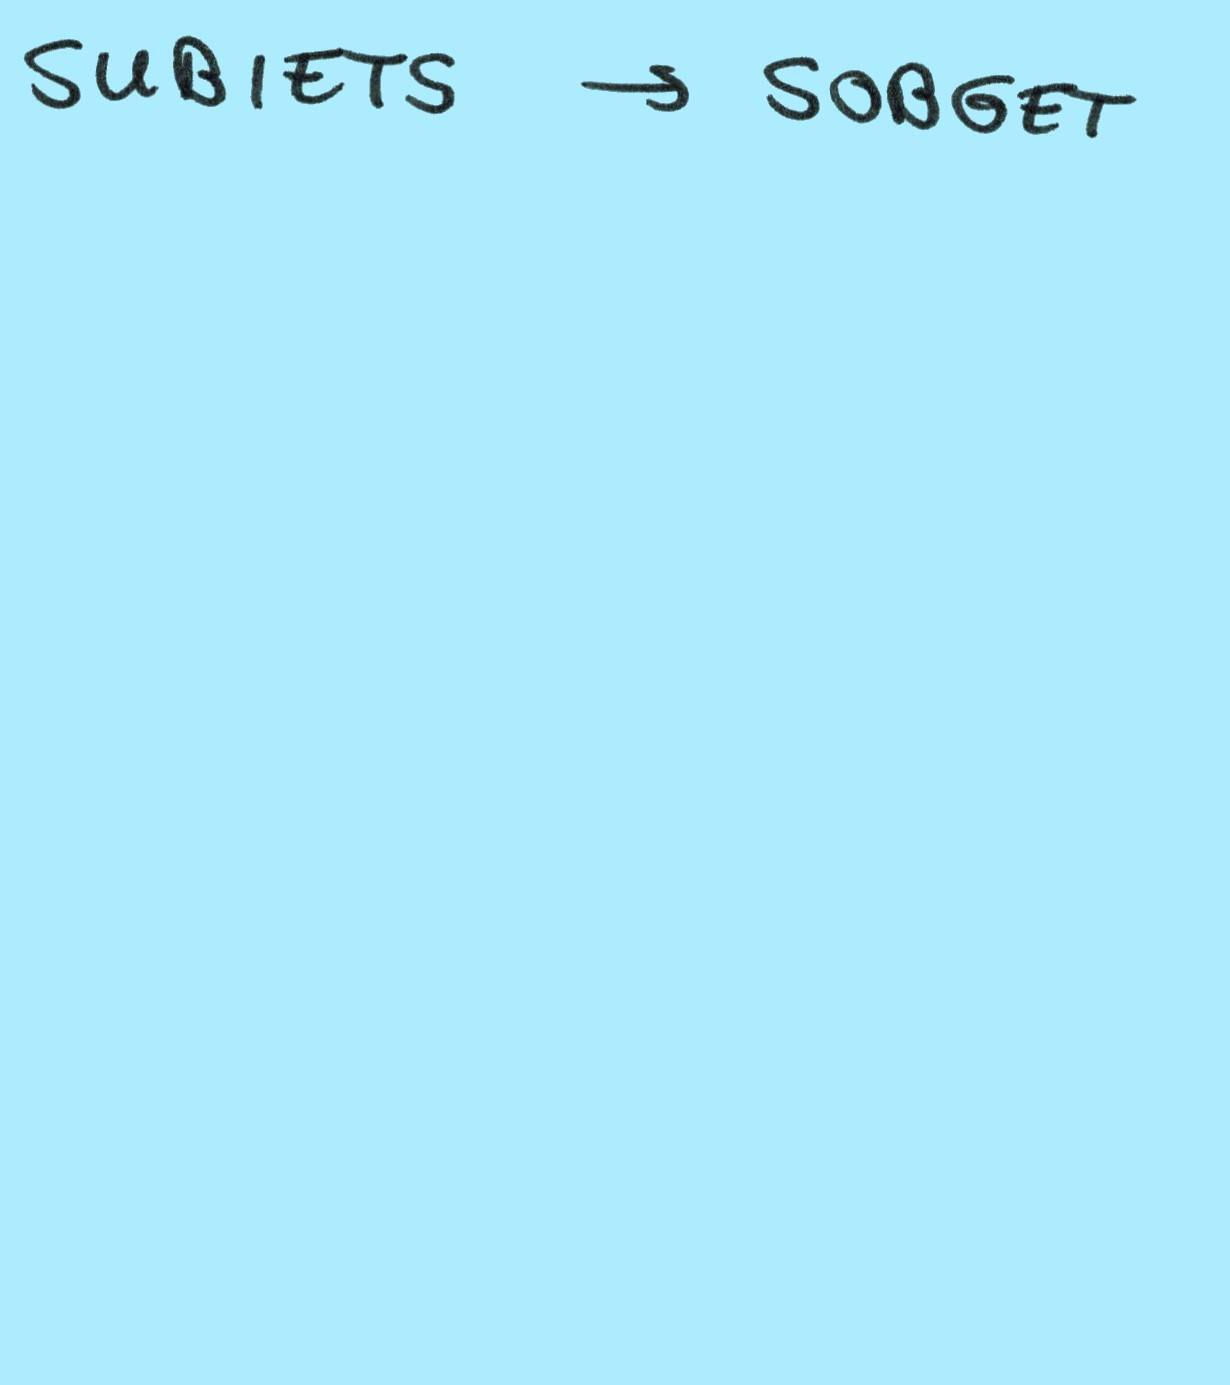 SUBIETS → SOBGET